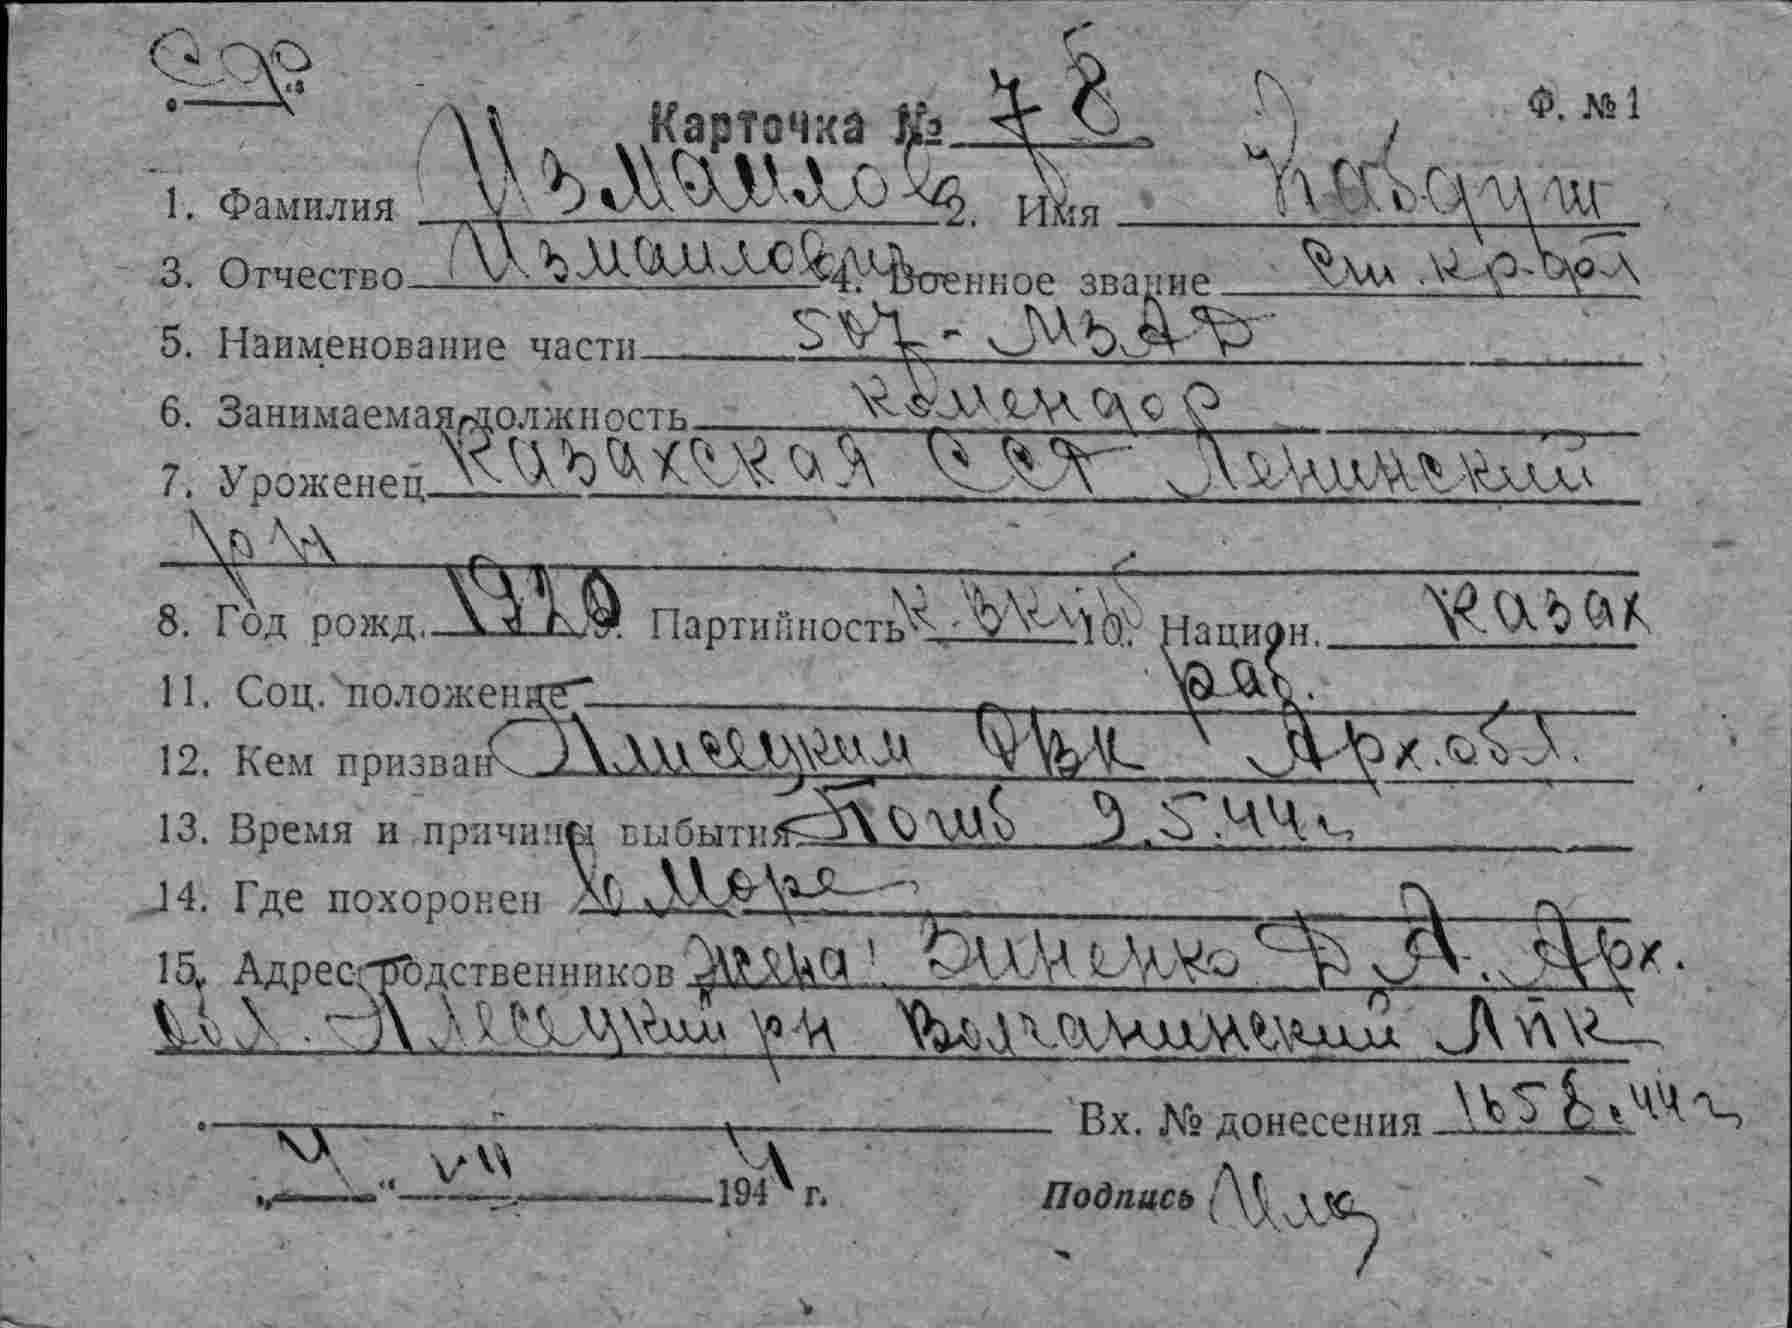 Ф. №1
Карточка № 78
1. Фамилия Измаилов 2. Имя
3. Отчество Измаилович 4. Военное звание Ст. кр-фл
5. Наименование части
6. Занимаемая должность комендор
7. Уроженец Казахская ССР Ленинский
р-н
8. Год рожд. 1920 9. Партийность 10. Национ. казах
11. Соц. положение раб.
12. Кем призван Плисецким РВК Арх. обл.
13. Время и причины выбытия Погиб 9.5.44 г.
14. Где похоронен В море
15. Адрес родственников жена: Зиненко Ф. А. Арх.
обл. Плисецкий р-н
Вх. № донесения 1658.44 г.
„ “ VII 1944 г. Подпись